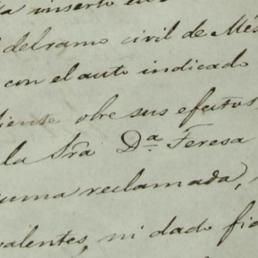 inserto en
del ramo civil de Méx
con el auto indicado
obre sus efectos
la Sra D.a Teresa
suma reclamada,
valentes, ni dado fia